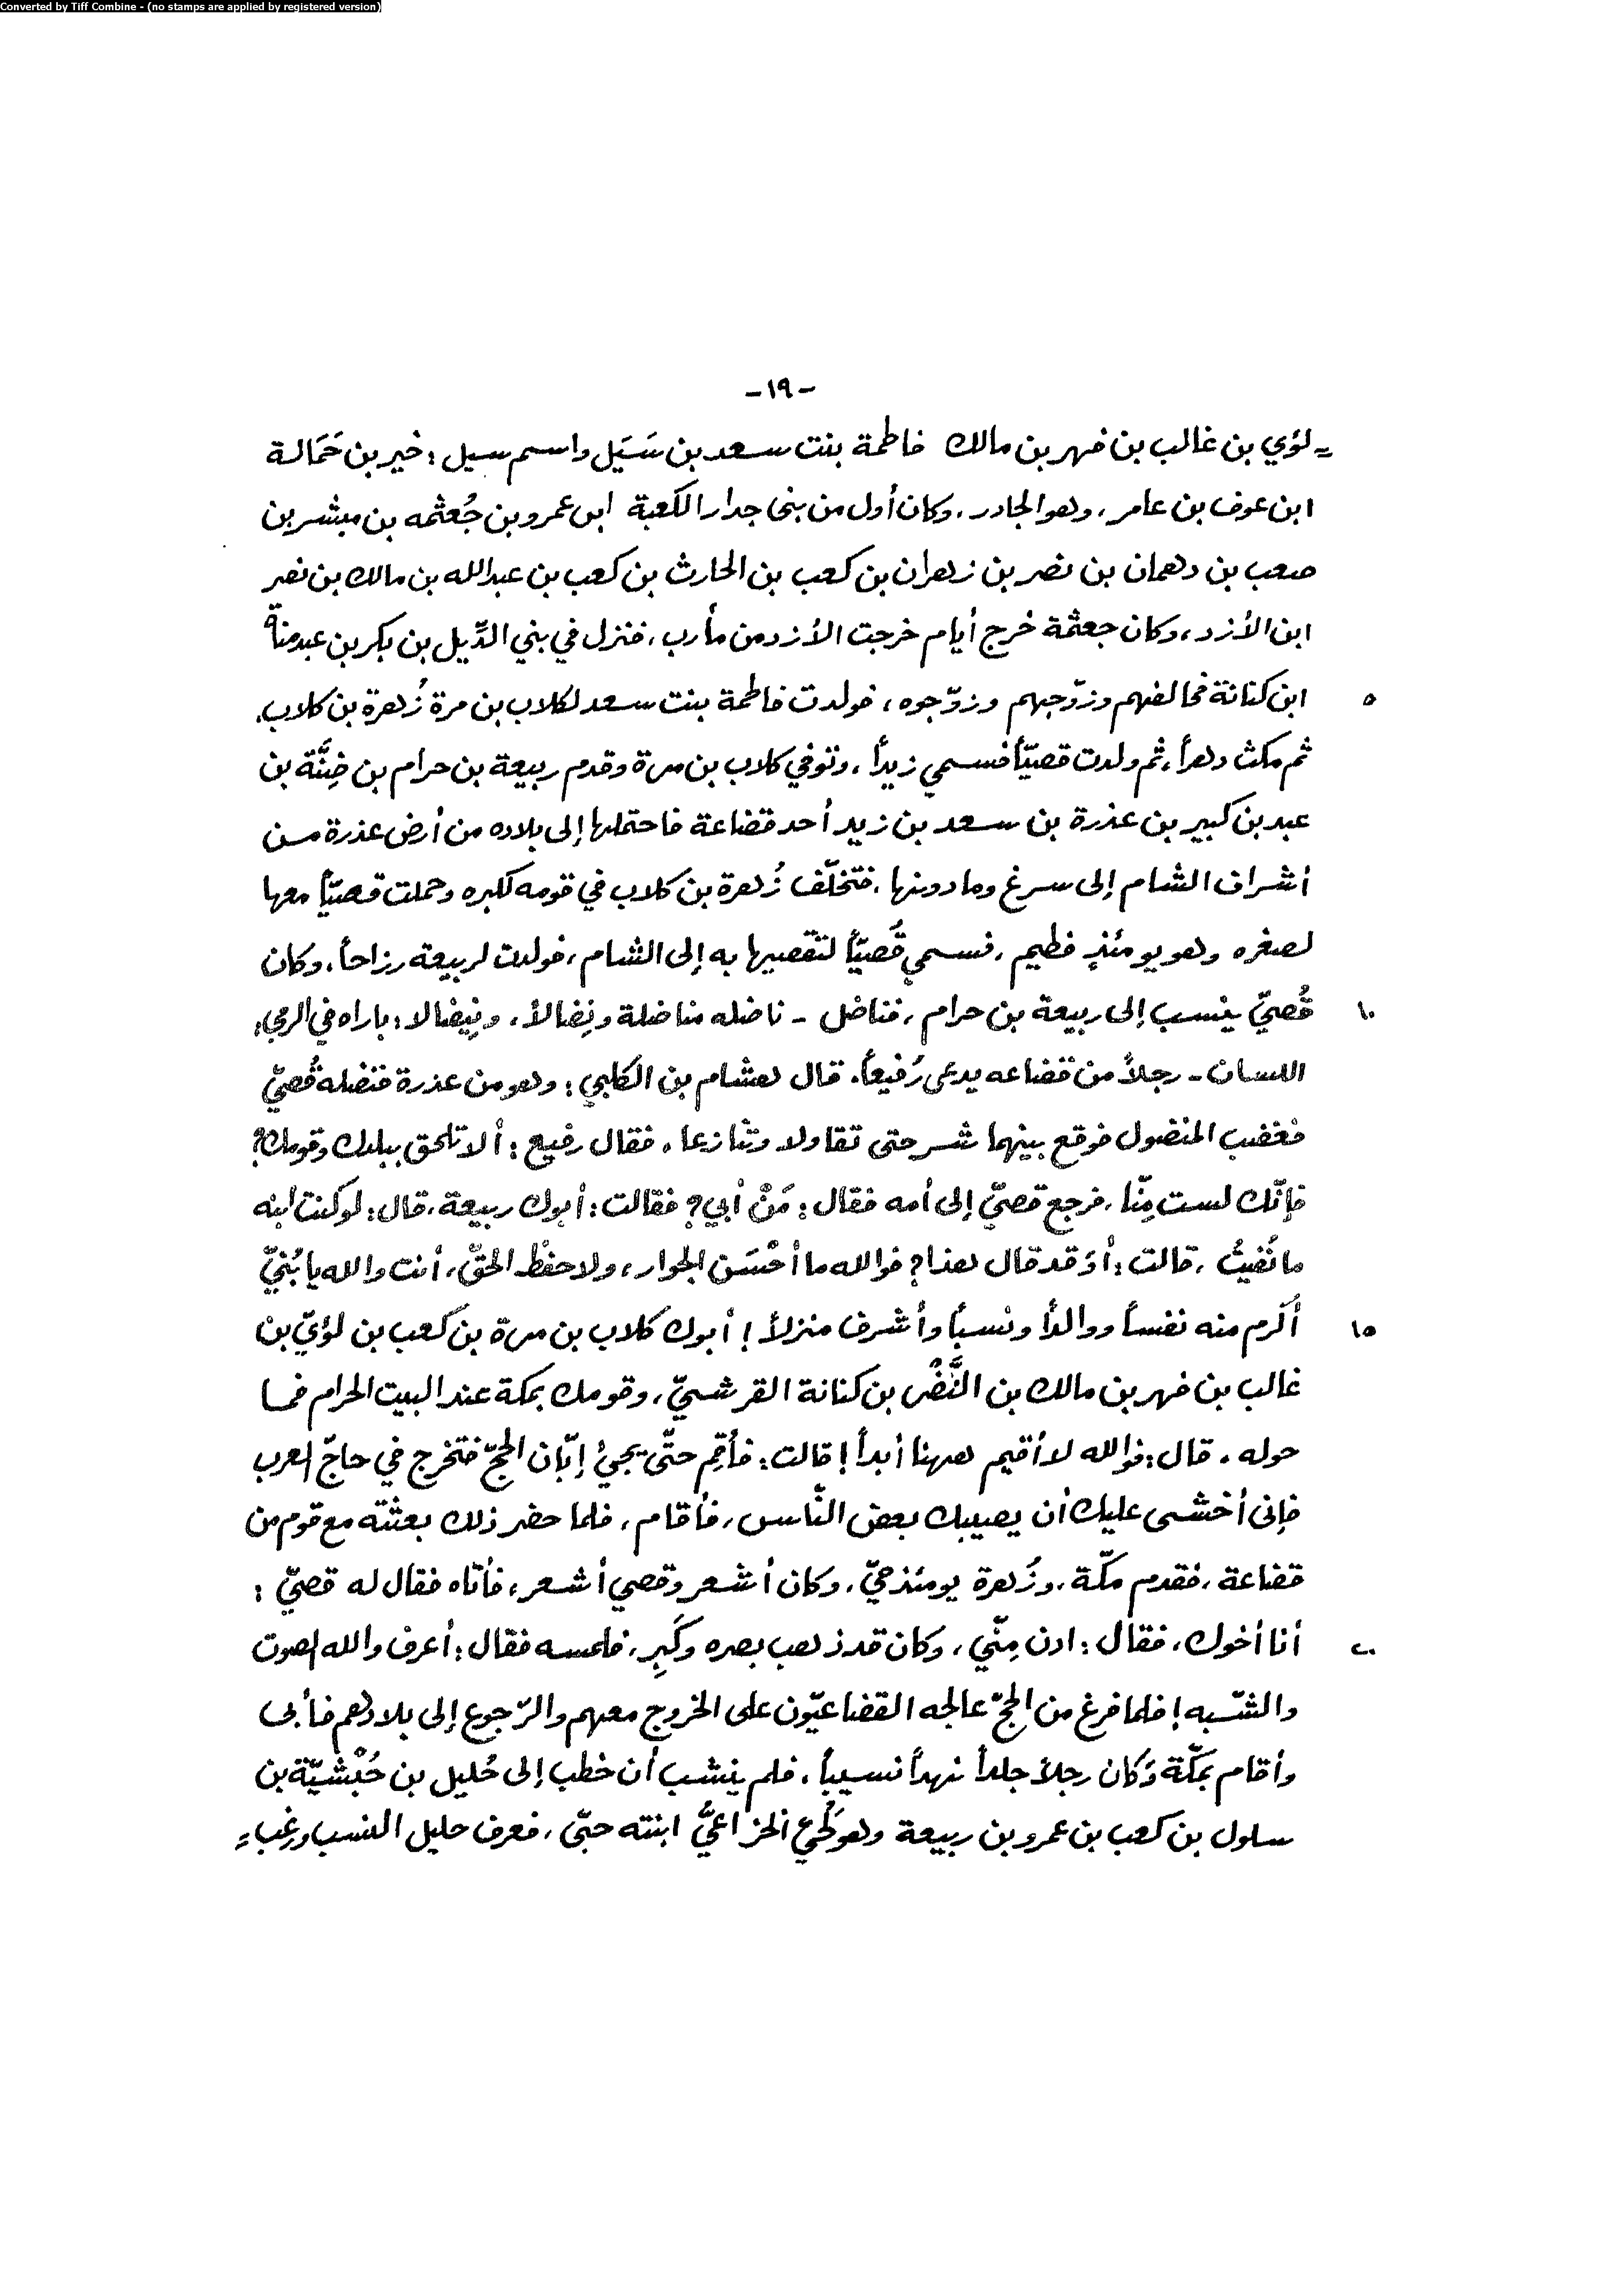 Converted by Tiff Combine - (no stamps are applied by registered version)
- ١٩ -
= لؤي بن غالب بن فهر بن مالك فاطمة بنت سعد بن سَيَل واسم سيل : خير بن حَمَالة
ابن عوف بن عامر ، وهو الجادر ، وكان أول من بنى جدار الكعبة ابن عمرو بن جُعثمه بن مبشر بن
صعب بن دهمان بن نصر بن زهران بن كعب بن الحارث بن كعب بن عبدالله بن مالك بن نصر
ابن الأزد ، وكان جعثمة خرج أيام خرجت الأزد من مأرب ، فنزل في بني الدِّيل بن بكر بن عبدمناة
٥ ابن كنانة فحالفهم وزوّجهم وزوّجوه ، فولدت فاطمة بنت سعد لكلاب بن مرة زُهرة بن كلاب ،
ثم مكث دهراً ، ثم ولدت قصيّاً فسمي زيداً ، وتوفي كلاب بن مرة وقدم ربيعة بن حرام بن ضِنَّة بن
عبد بن كبير بن عذرة بن سعد بن زيد أحد قضاعة فاحتملها إلى بلاده من أرض عذرة من
أشراف الشام إلى سرغ وما دونها ، فتخلّف زُهرة بن كلاب في قومه لكبره وحملت قصيّاً معها
لصغره وهو يومئذٍ فطيم ، فسمي قُصيّاً لتقصيها به إلى الشام ، فولدت لربيعة رزاحاً ، وكان
١٠ قُصيّ ينسب إلى ربيعة بن حرام ، فناضل - ناضله مناضلة ونِضالاً ، ونِيضالا : باراه في الرمي ،
اللسان - رجلاً من قضاعه يدعى رُفيعاً . قال هشام بن الكلبي : وهو من عذرة فنضله قُصيّ
فغضب المنضول فوقع بينهما شر حتى تقاولا وتنازعا . فقال رفيع : ألا تلحق ببلدك وقومك ؟
فإنّك لست مِنّا ، فرجع قصيّ إلى أمه فقال : مَنْ أبي ؟ فقالت : أبوك ربيعة ، قال : لو كنت ابنه
ما نُفيتُ ، قالت : أوَ قد قال هذا ؟ فوالله ما أحْسَن الجوار ، ولا حفظ الحقّ ، أنت والله يا بُنيّ
١٥ أكرم منه نفساً ووالداً ونسباً وأشرف منزلاً ! أبوك كلاب بن مرة بن كعب بن لؤيّ بن
غالب بن فهر بن مالك بن النَّضْر بن كنانة القرشيّ ، وقومك بمكة عند البيت الحرام فما
حوله . قال : فوالله لا أقيم ههنا أبداً ! قالت : فأقِم حتّى يجيئ إبّان الحجّ فتخرج في حاجّ العرب
فإنى أخشى عليك أن يصيبك بعض النّاس ، فأقام ، فلما حضر ذلك بعثته مع قوم من
قضاعة ، فقدم مكّة ، وزُهرة يومئذ حيّ ، وكان أشعر وقصي أشعر ، فأتاه فقال له قصيّ :
٢٠ أنا أخوك ، فقال : ادن مِنّي ، وكان قد ذهب بصره وكَبِر ، فلمسه فقال : أعرف والله الصوت
والشّبه ! فلما فرغ من الحجّ عالجه القضاعيّون على الخروج معهم والرّجوع إلى بلادهم فأبى
وأقام بمكّة وَكان رجلاً جلداً نهداً نسيباً ، فلم ينشب أن خطب إلى حُليل بن حُبْشيّة بن
سلول بن كعب بن عمرو بن ربيعة وهو لُحَي الخزاعيُّ ابنته حبّى ، فعرف حليل النسب ورغب =